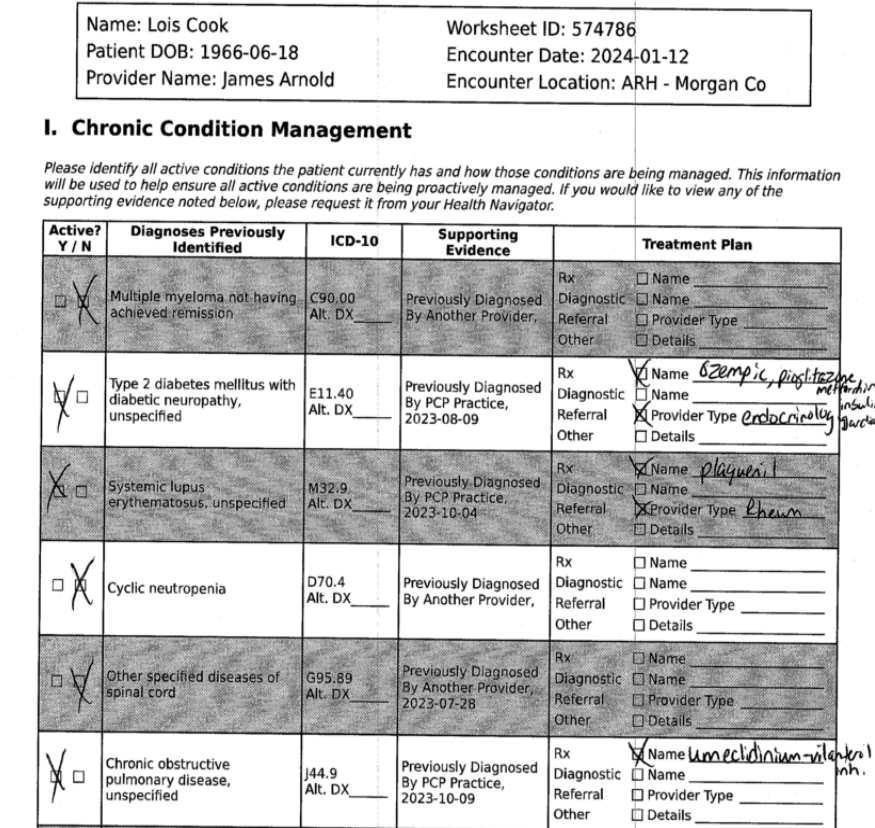 Name: Lois Cook Worksheet ID: 574786
Patient DOB: 1966-06-18 Encounter Date: 2024-01-12
Provider Name: James Arnold Encounter Location: ARH - Morgan Co
I. Chronic Condition Management
Please identify all active conditions the patient currently has and how those conditions are being managed. This information
will be used to help ensure all active conditions are being proactively managed. If you would like to view any of the
supporting evidence noted below, please request it from your Health Navigator.
Active?
Y / N
Diagnoses Previously
Identified
ICD-10
Supporting
Evidence
Treatment Plan
Multiple myeloma not having
achieved remission
C90.00
Alt. DX
Previously Diagnosed
By Another Provider,
Rx Name
Diagnostic Name
Referral Provider Type
Other Details
Type 2 diabetes mellitus with
diabetic neuropathy,
unspecified
E11.40
Alt. DX
Previously Diagnosed
By PCP Practice,
2023-08-09
Rx Name Ozempic, pioglitazone
Diagnostic Name
Referral Provider Type endocrinolog
Other Details
Systemic lupus
erythematosus, unspecified
M32.9
Alt. DX
Previously Diagnosed
By PCP Practice,
2023-10-04
Rx Name plaquenil
Diagnostic Name
Referral Provider Type Rheum
Other Details
Cyclic neutropenia
D70.4
Alt. DX
Previously Diagnosed
By Another Provider,
Rx Name
Diagnostic Name
Referral Provider Type
Other Details
Other specified diseases of
spinal cord
G95.89
Alt. DX
Previously Diagnosed
By Another Provider,
2023-07-28
Rx Name
Diagnostic Name
Referral Provider Type
Other Details
Chronic obstructive
pulmonary disease,
unspecified
J44.9
Alt. DX
Previously Diagnosed
By PCP Practice,
2023-10-09
Rx Name umeclidinium-vilanterol
inh.
Diagnostic Name
Referral Provider Type
Other Details